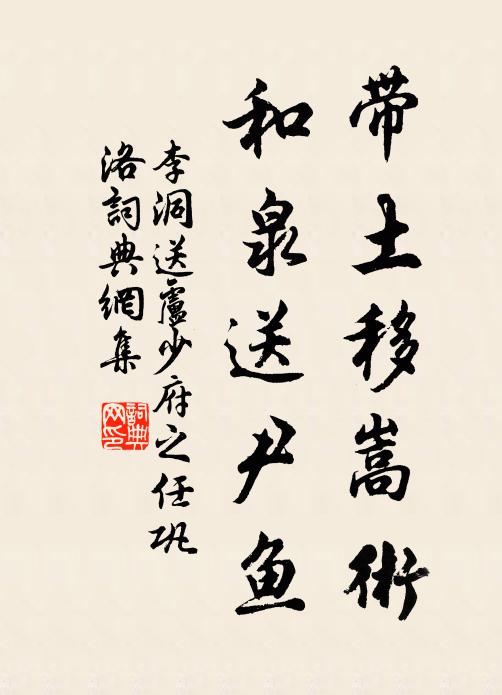 带土移嵩術
和泉送尹鱼
李洞送盧少府之任巩
洛詞典網集
詞典
网印